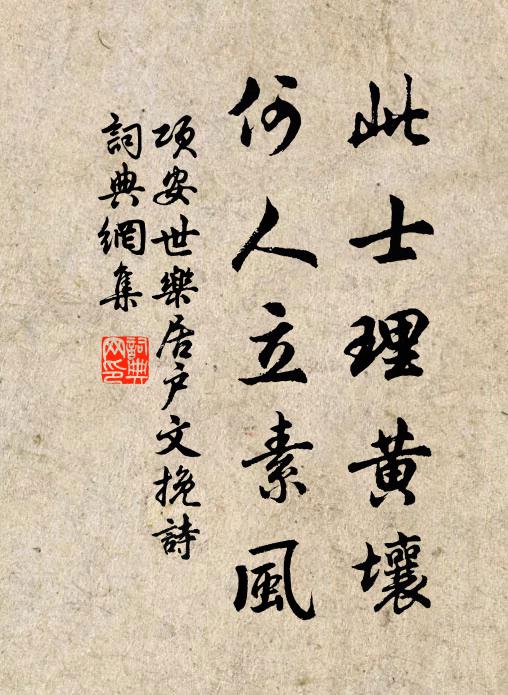 此士理黄壤
何人立素風
項安世樂居戶文挽詩
詞典網集
詞典網印